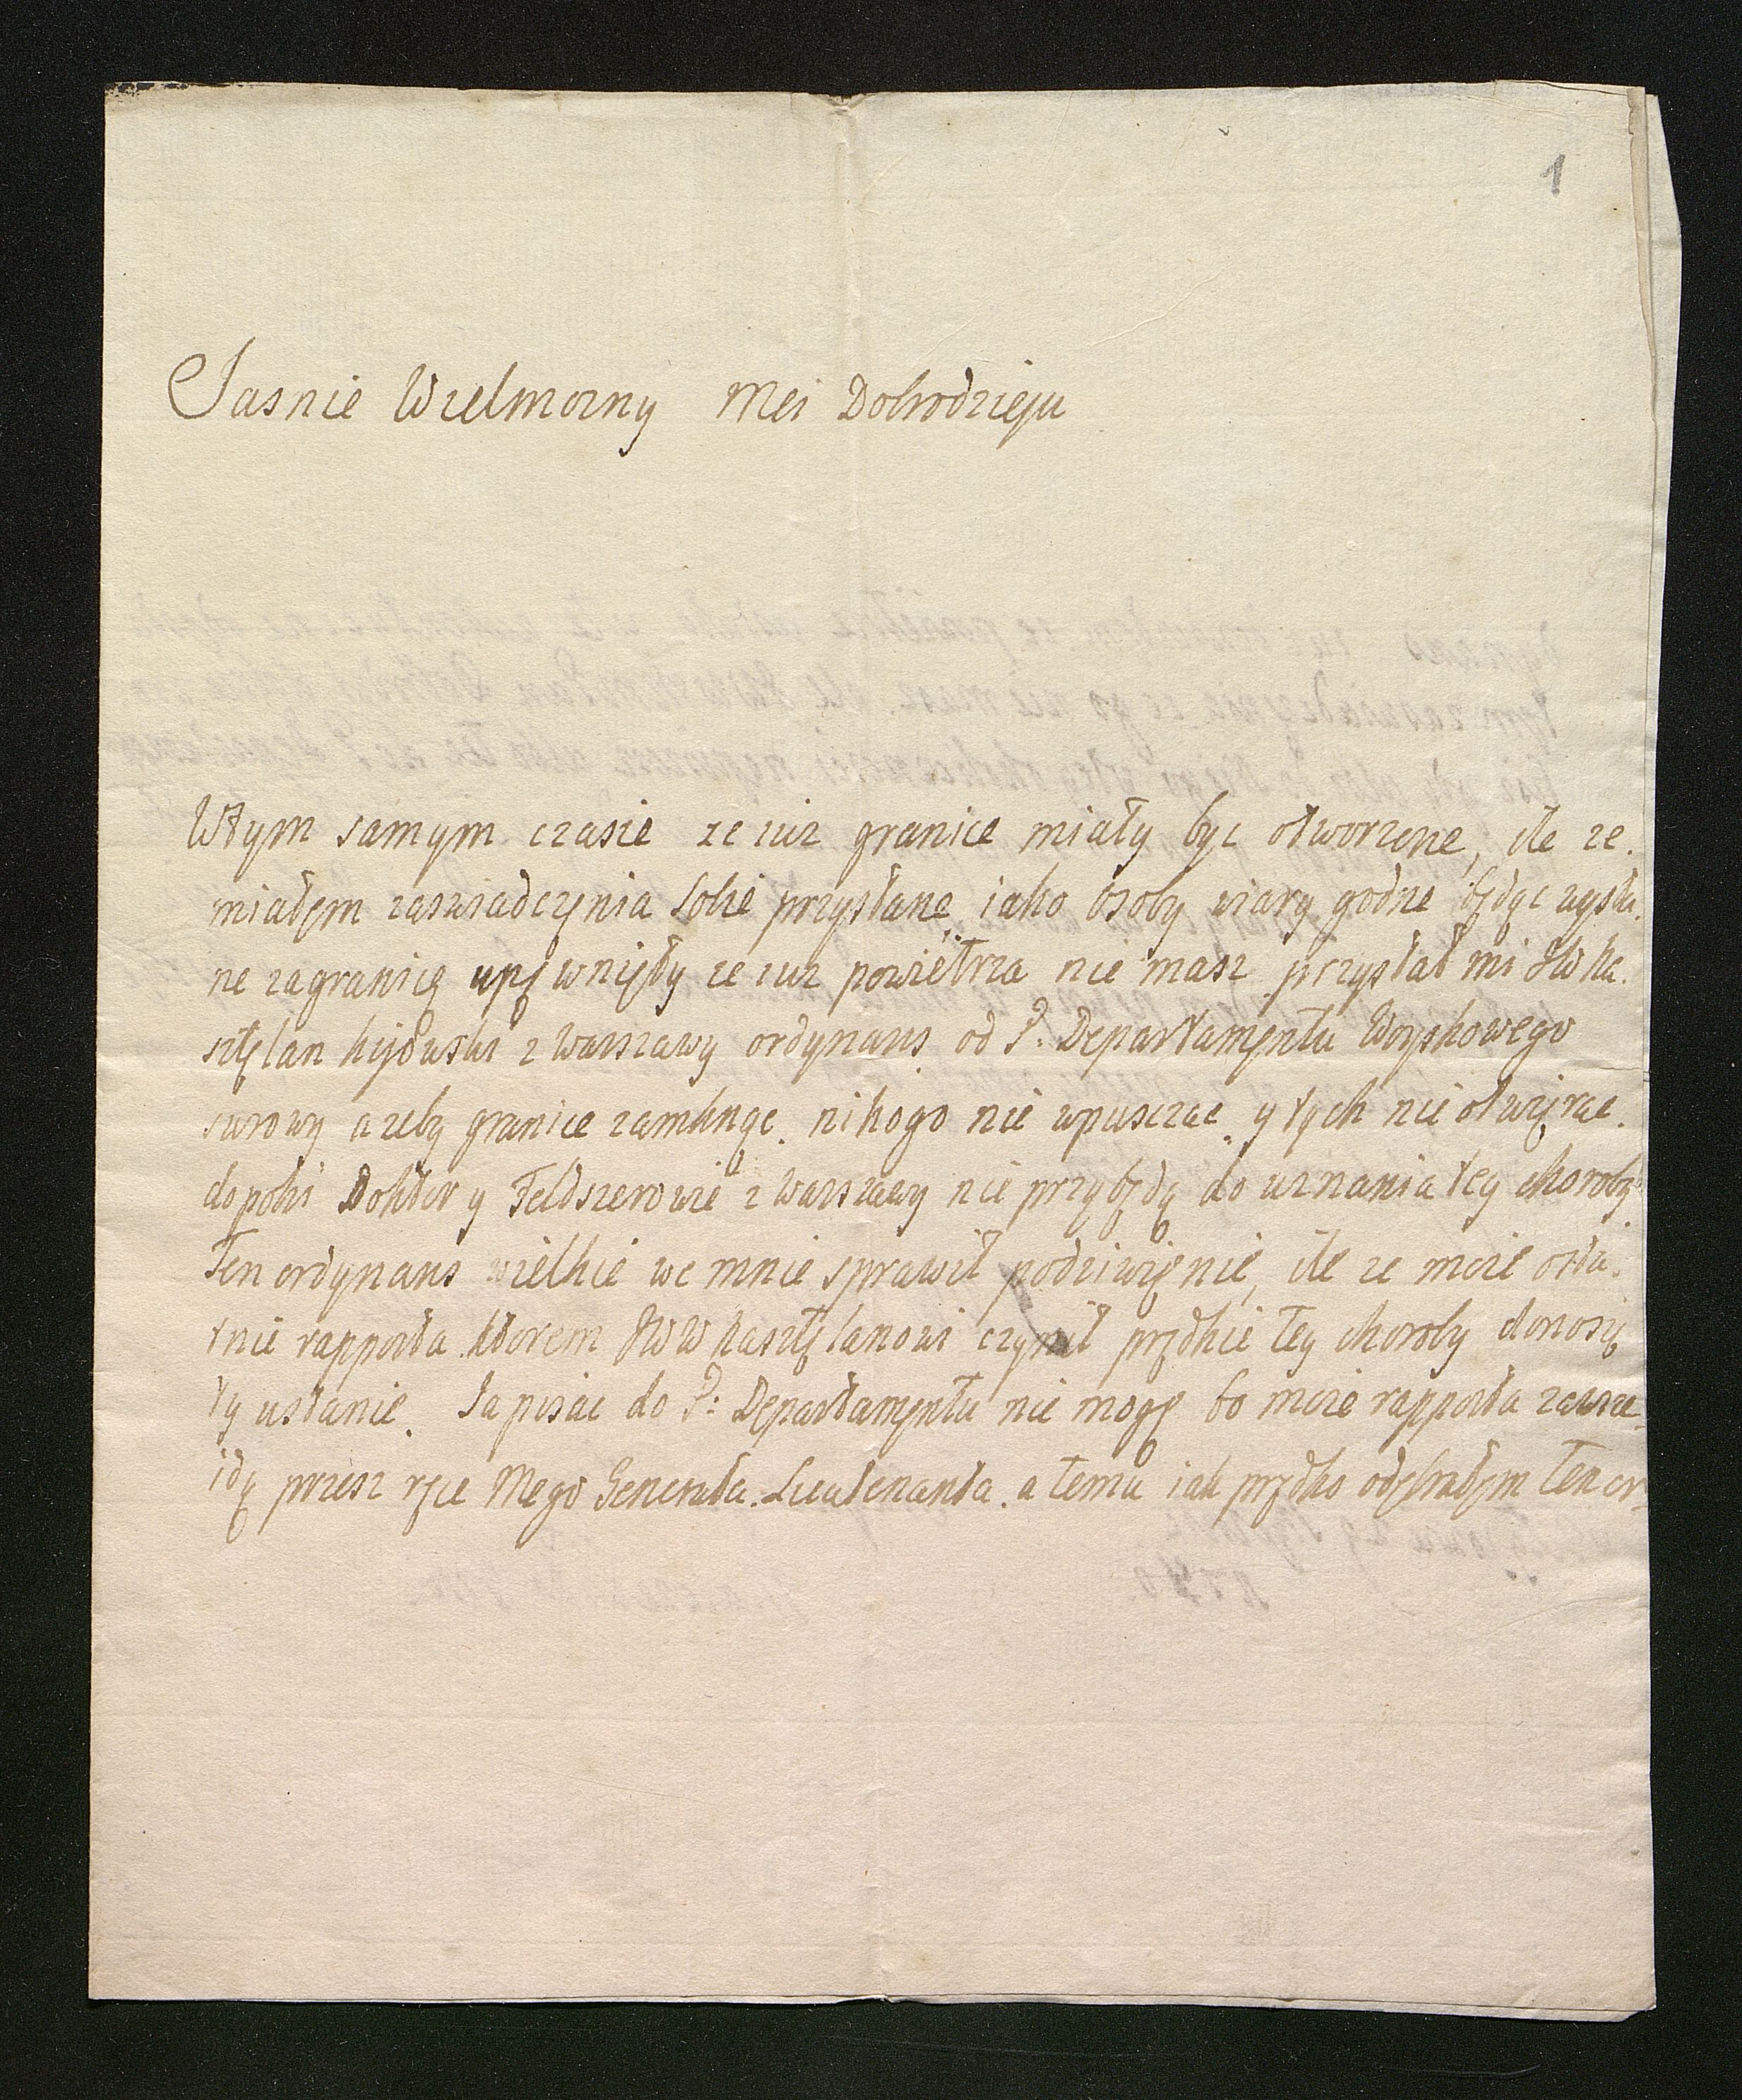 1
Jasnie Wielmozny Mci Dobrodzieju
Wtym samym czasie ze iuz granice miały byc otworzone, ile ze.
miałem zaswiadczęnia sobie przysłane iako osoby wiary godne będąc wysła.
ne zagranicę upęwnięły ze iuz powietrza nie masz przysłał mi JW ka.
sztęlan kijowski z Warszawy ordynans od P: Departamęntu Woyskowego
surowy azeby granice zamknąc. nikogo nie wpuszczac y tych nie otwięrac.
dopoki Doktor y Feldszerowie z Warszawy nie przybędą do uznania tey choroby.
Ten ordynans wielkie we mnie sprawił podziwięnie, ile ze moie osta.
tnie rapporta ktorem JWW kasztęlanowi czynił prędkie tey choroby donosi
ły ustanie. Ja pisac do P: Departamęntu nie mogę bo moie rapporta zawsze
idą przesz ręce Mego Generała Lieutenanta. a temu iak prędko odębrałęm ten or